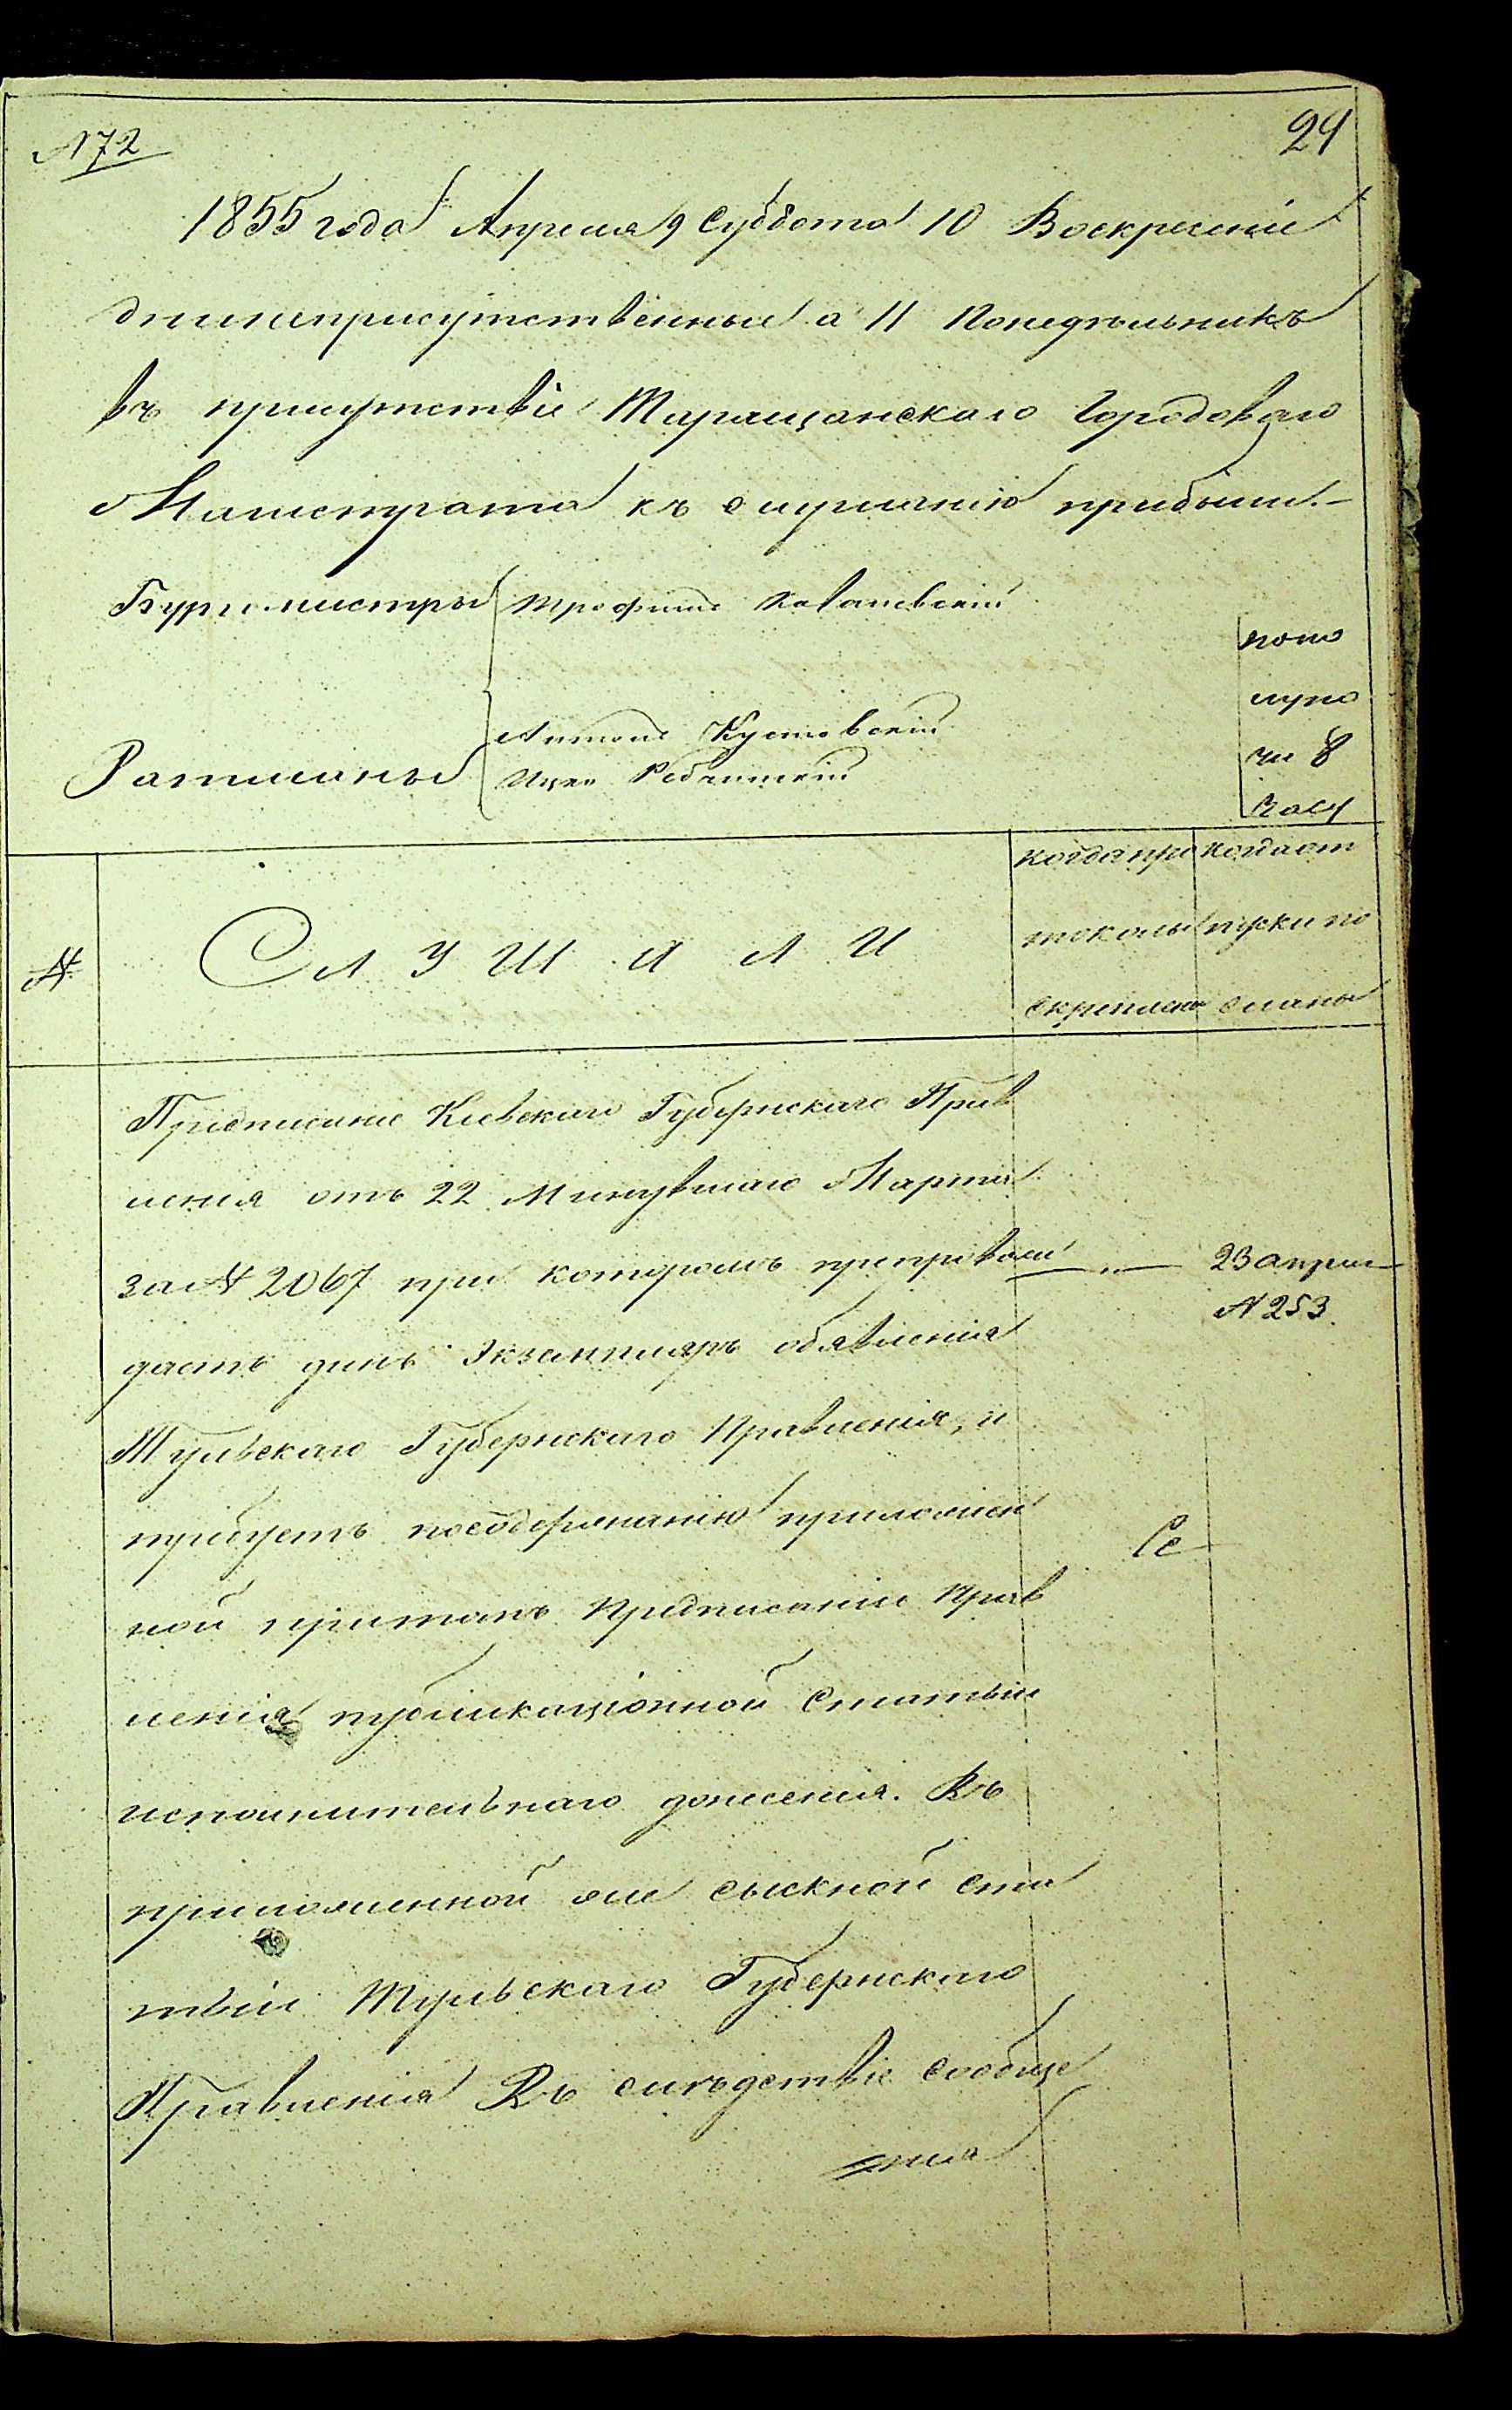 № 72
29
1855 года Апреля 9 Суббота 10 Воскресеніе
дни неприсутственные а 11 Понедѣльникъ
въ присутствіе Таращанскаго Городоваго
Магистрата къ слушанію прибыли.-
Бургомистры Трофимъ
попо
луно
Антонъ Кустовскій
чи 8
Ратманы Ицко
часу
№
С Л У Ш А Л И
когда про
токолы
скреплены
когда от
пуски по
сланы
Предписаніе Кіевскаго Губернскаго Прав
ленія отъ 22 Минувшаго Марта
за № 2067 при которомъ препровож
23 апреля
№ 253.
даетъ динъ Экземпляръ обявленія
Тульскаго Губернскаго Правленія, и
требуетъ посодержанію приложен
Се
ной притомъ предписаніи Прав
ленія публикаціонной Статьи
исполнительнаго донесенія. Въ
приложенной же сыскной ста
тьи Тульскаго Губернскаго
Правленія Въ слѣдствіе сообще
нія